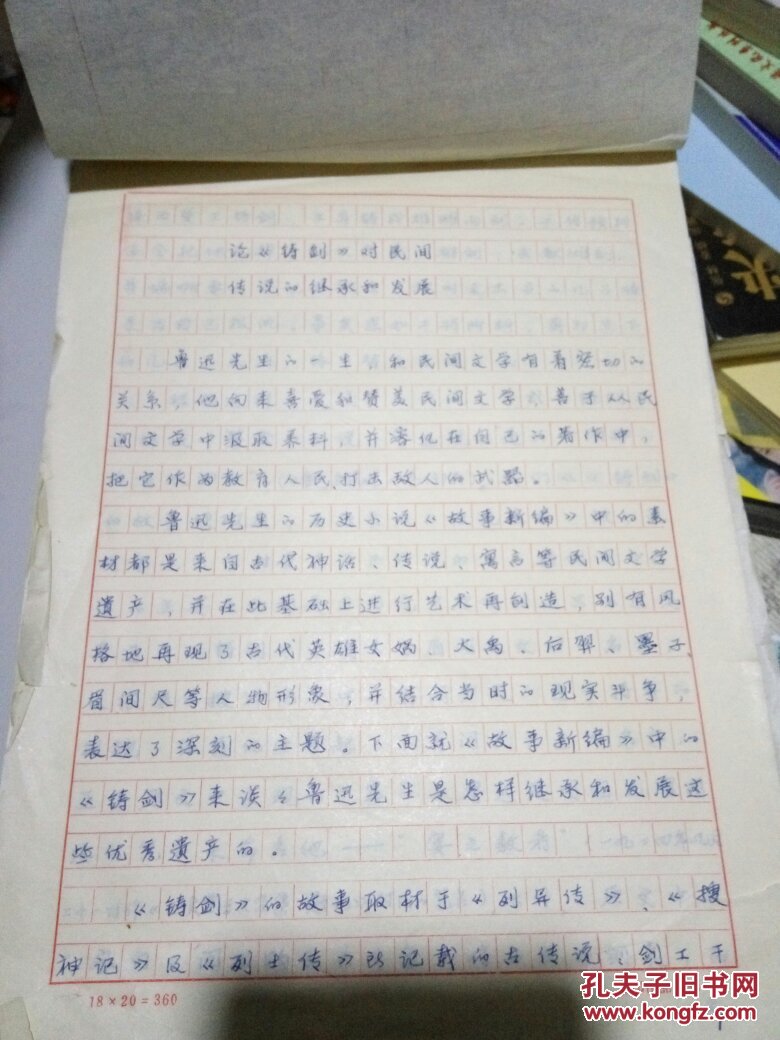 论《铸剑》对民间
传说的继承和发展
鲁迅先生的一生和民间文学有着密切的
关系，他向来喜爱和赞美民间文学，善于从民
间文学中汲取养料，并溶化在自己的著作中，
把它作为教育人民、打击敌人的武器。
鲁迅先生的历史小说《故事新编》中的素
材都是来自古代神话、传说、寓言等民间文学
遗产，并在此基础上进行艺术再创造，别有风
格地再现了古代英雄女娲、大禹、后羿、墨子、
眉间尺等人物形象，并结合当时的现实斗争，
表达了深刻的主题。下面就《故事新编》中的
《铸剑》来谈々鲁迅先生是怎样继承和发展这
些优秀遗产的。
《铸剑》的故事取材于《列异传》、《搜
神记》及《列士传》所记载的古传说，剑工干
18×20=360
1
孔夫子旧书网
www.kongfz.com